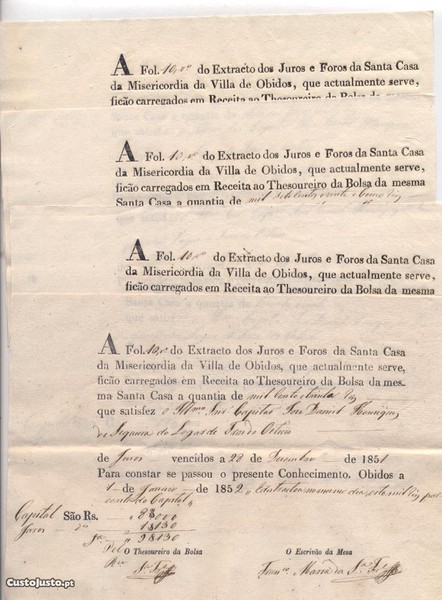 A Fol. 10, vo do Extracto dos Juros e Foros da Santa Casa
da Misericordia da Villa de Obidos, que actualmente serve,
ficão carregados em Receita ao Thesoureiro da Bolsa da mesma
A Fol. 10, vo do Extracto dos Juros e Foros da Santa Casa
da Misericordia da Villa de Obidos, que actualmente serve,
ficão carregados em Receita ao Thesoureiro da Bolsa da mesma
Santa Casa a quantia de mil
A Fol. 10, vo do Extracto dos Juros e Foros da Santa Casa
da Misericordia da Villa de Obidos, que actualmente serve,
ficão carregados em Receita ao Thesoureiro da Bolsa da mesma
A Fol. 10, vo do Extracto dos Juros e Foros da Santa Casa
da Misericordia da Villa de Obidos, que actualmente serve,
ficão carregados em Receita ao Thesoureiro da Bolsa da mes-
ma Santa Casa a quantia de mil cento e
que satisfez o Illmo Snr Capitão Jose Daniel
de
de Juros vencidos a 28 de Dezembro de 1851
Para constar se passou o presente Conhecimento. Obidos a
1 de Janeiro de 1852
Capital São Rs.
Juros
O Thesoureiro da Bolsa
O Escrivão da Mesa
Maria da
CustoJusto.pt